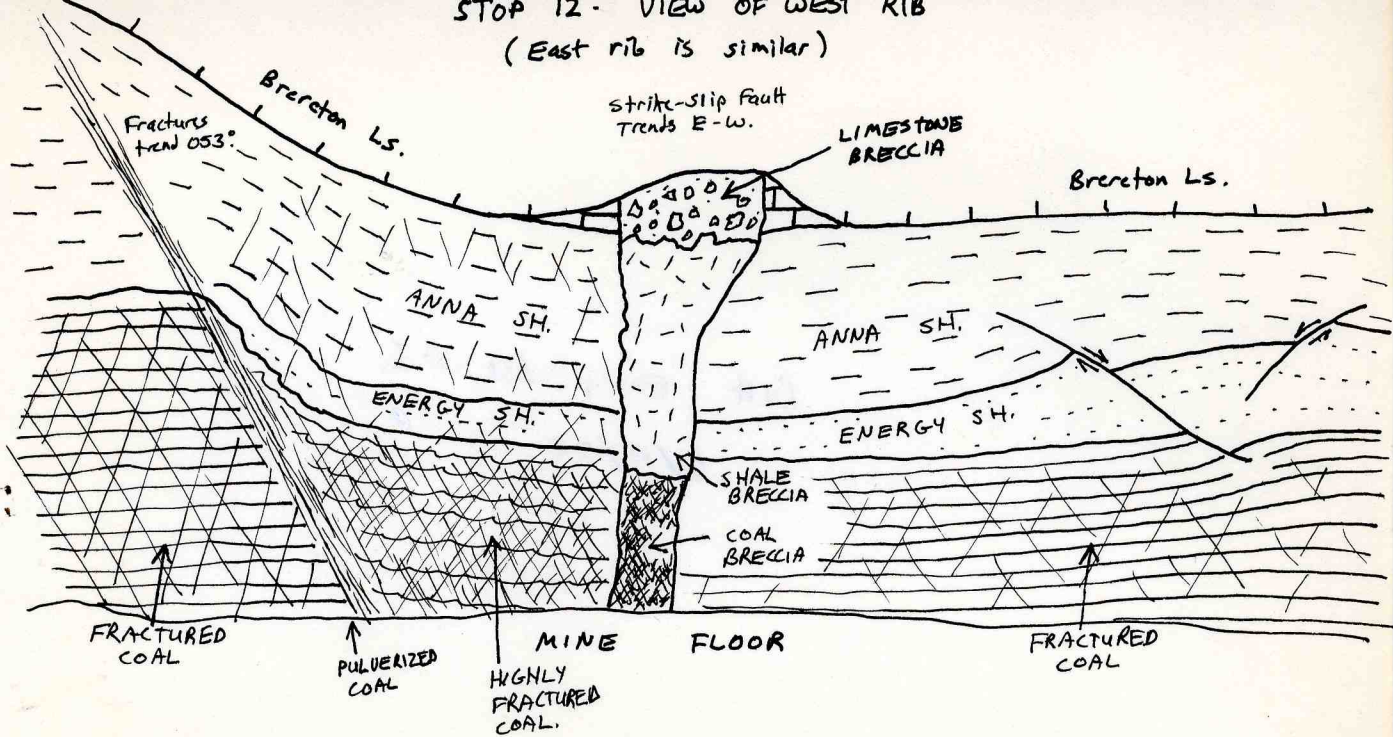 STOP 12. VIEW OF WEST RIB
(East rib is similar)
Brereton Ls.
Fractures
trend 053°.
Strike-Slip Fault
Trends E-W.
LIMESTONE
BRECCIA
Brereton Ls.
ANNA SH.
ANNA SH.
ENERGY SH.
ENERGY SH.
SHALE
BRECCIA
COAL
BRECCIA
FRACTURED
COAL
PULVERIZED
COAL
HIGHLY
FRACTURED
COAL.
MINE FLOOR
FRACTURED
COAL